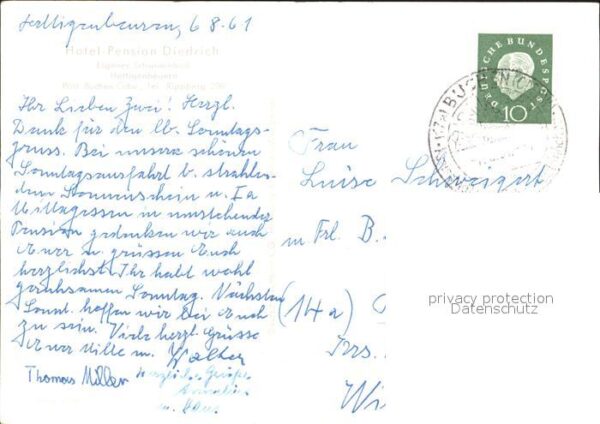 Hettigenbeuren, 6 8. 61
Hotel-Pension Diedrich
Eigener Schwimmbad
Hettigenbeuern
Ihr Lieben Zwei! Herzl.
Dank für den lb. Sonntags-
gruss. Bei unserer schönen
Sonntagsausfahrt b. strahlen-
dem Sonnenschein u. Ia
Mittagessen in umstehender
Pension gedenken wir auch
Euer u. grüssen Euch
herzlichst. Ihr habt wohl
geruhsamen Sonntag. Nächsten
Sonnt. hoffen wir bei Euch
zu sein. Viele herzl. Grüsse
Euer Wille u. Walter
Thomas Miller
herzliche Grüße
DEUTSCHE BUNDESPOST
10
BUCHEN
Frau
Luise Schweigert
m Frl. B.
(14a)
Wi
privacy protection
Datenschutz